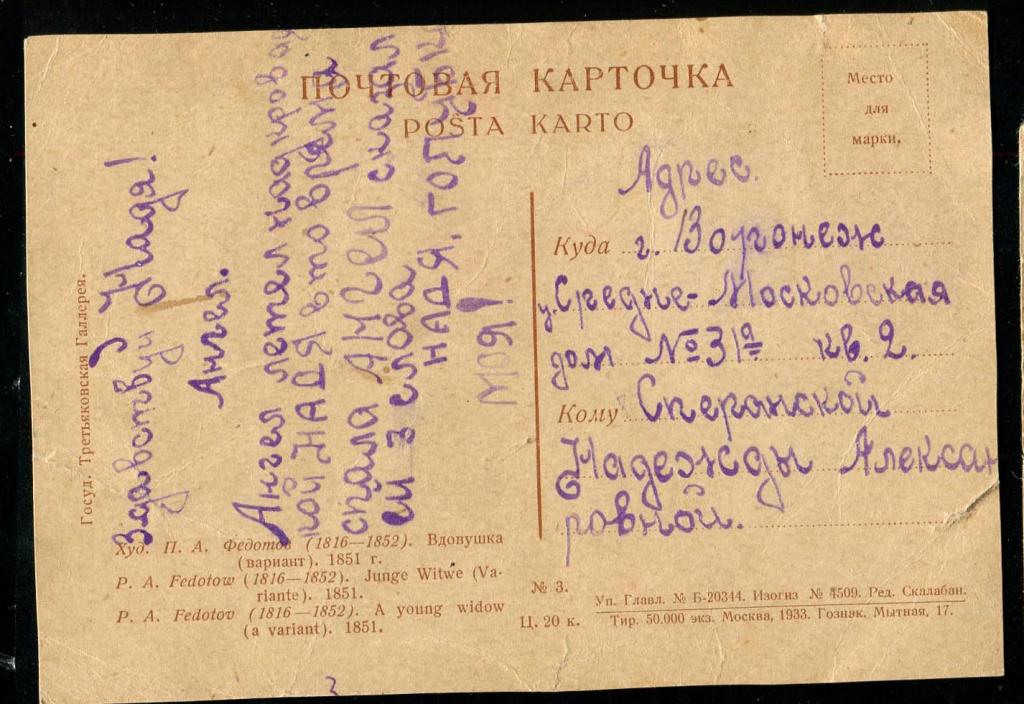 ПОЧТОВАЯ КАРТОЧКА
POŜTA KARTO
Место
для
марки.
Здавствуи Надя!
Ангел.
Ангел летел над кровац
кой НАДЯ в это время
спала АНГЕЛ сказал
еи 3 слова
НАДЯ, ГОЛУБКА
МОЯ!
Адрес.
Куда г. Воронеж
у. Средне-Московская
дом № 31а кв. 2.
Кому Сперанской
Надежды Алексан
ровной.
Госуд. Третьяковская Галлерея.
Худ. П. А. Федотов (1816—1852). Вдовушка
(вариант). 1851 г.
P. A. Fedotow (1816—1852). Junge Witwe (Va-
riante). 1851.
P. A. Fedotov (1816—1852). A young widow
(a variant). 1851.
№ 3.
Ц. 20 к.
Уп. Главл. № Б-20344. Изогиз № 4509. Ред. Скалабан.
Тир. 50.000 экз. Москва, 1933. Гознак. Мытная, 17.
3